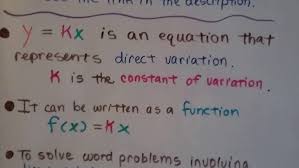 the link in the description.
• y = Kx is an equation that
represents direct variation.
K is the constant of variation.
• It can be written as a function
f(x) = Kx
• To solve word problems involving